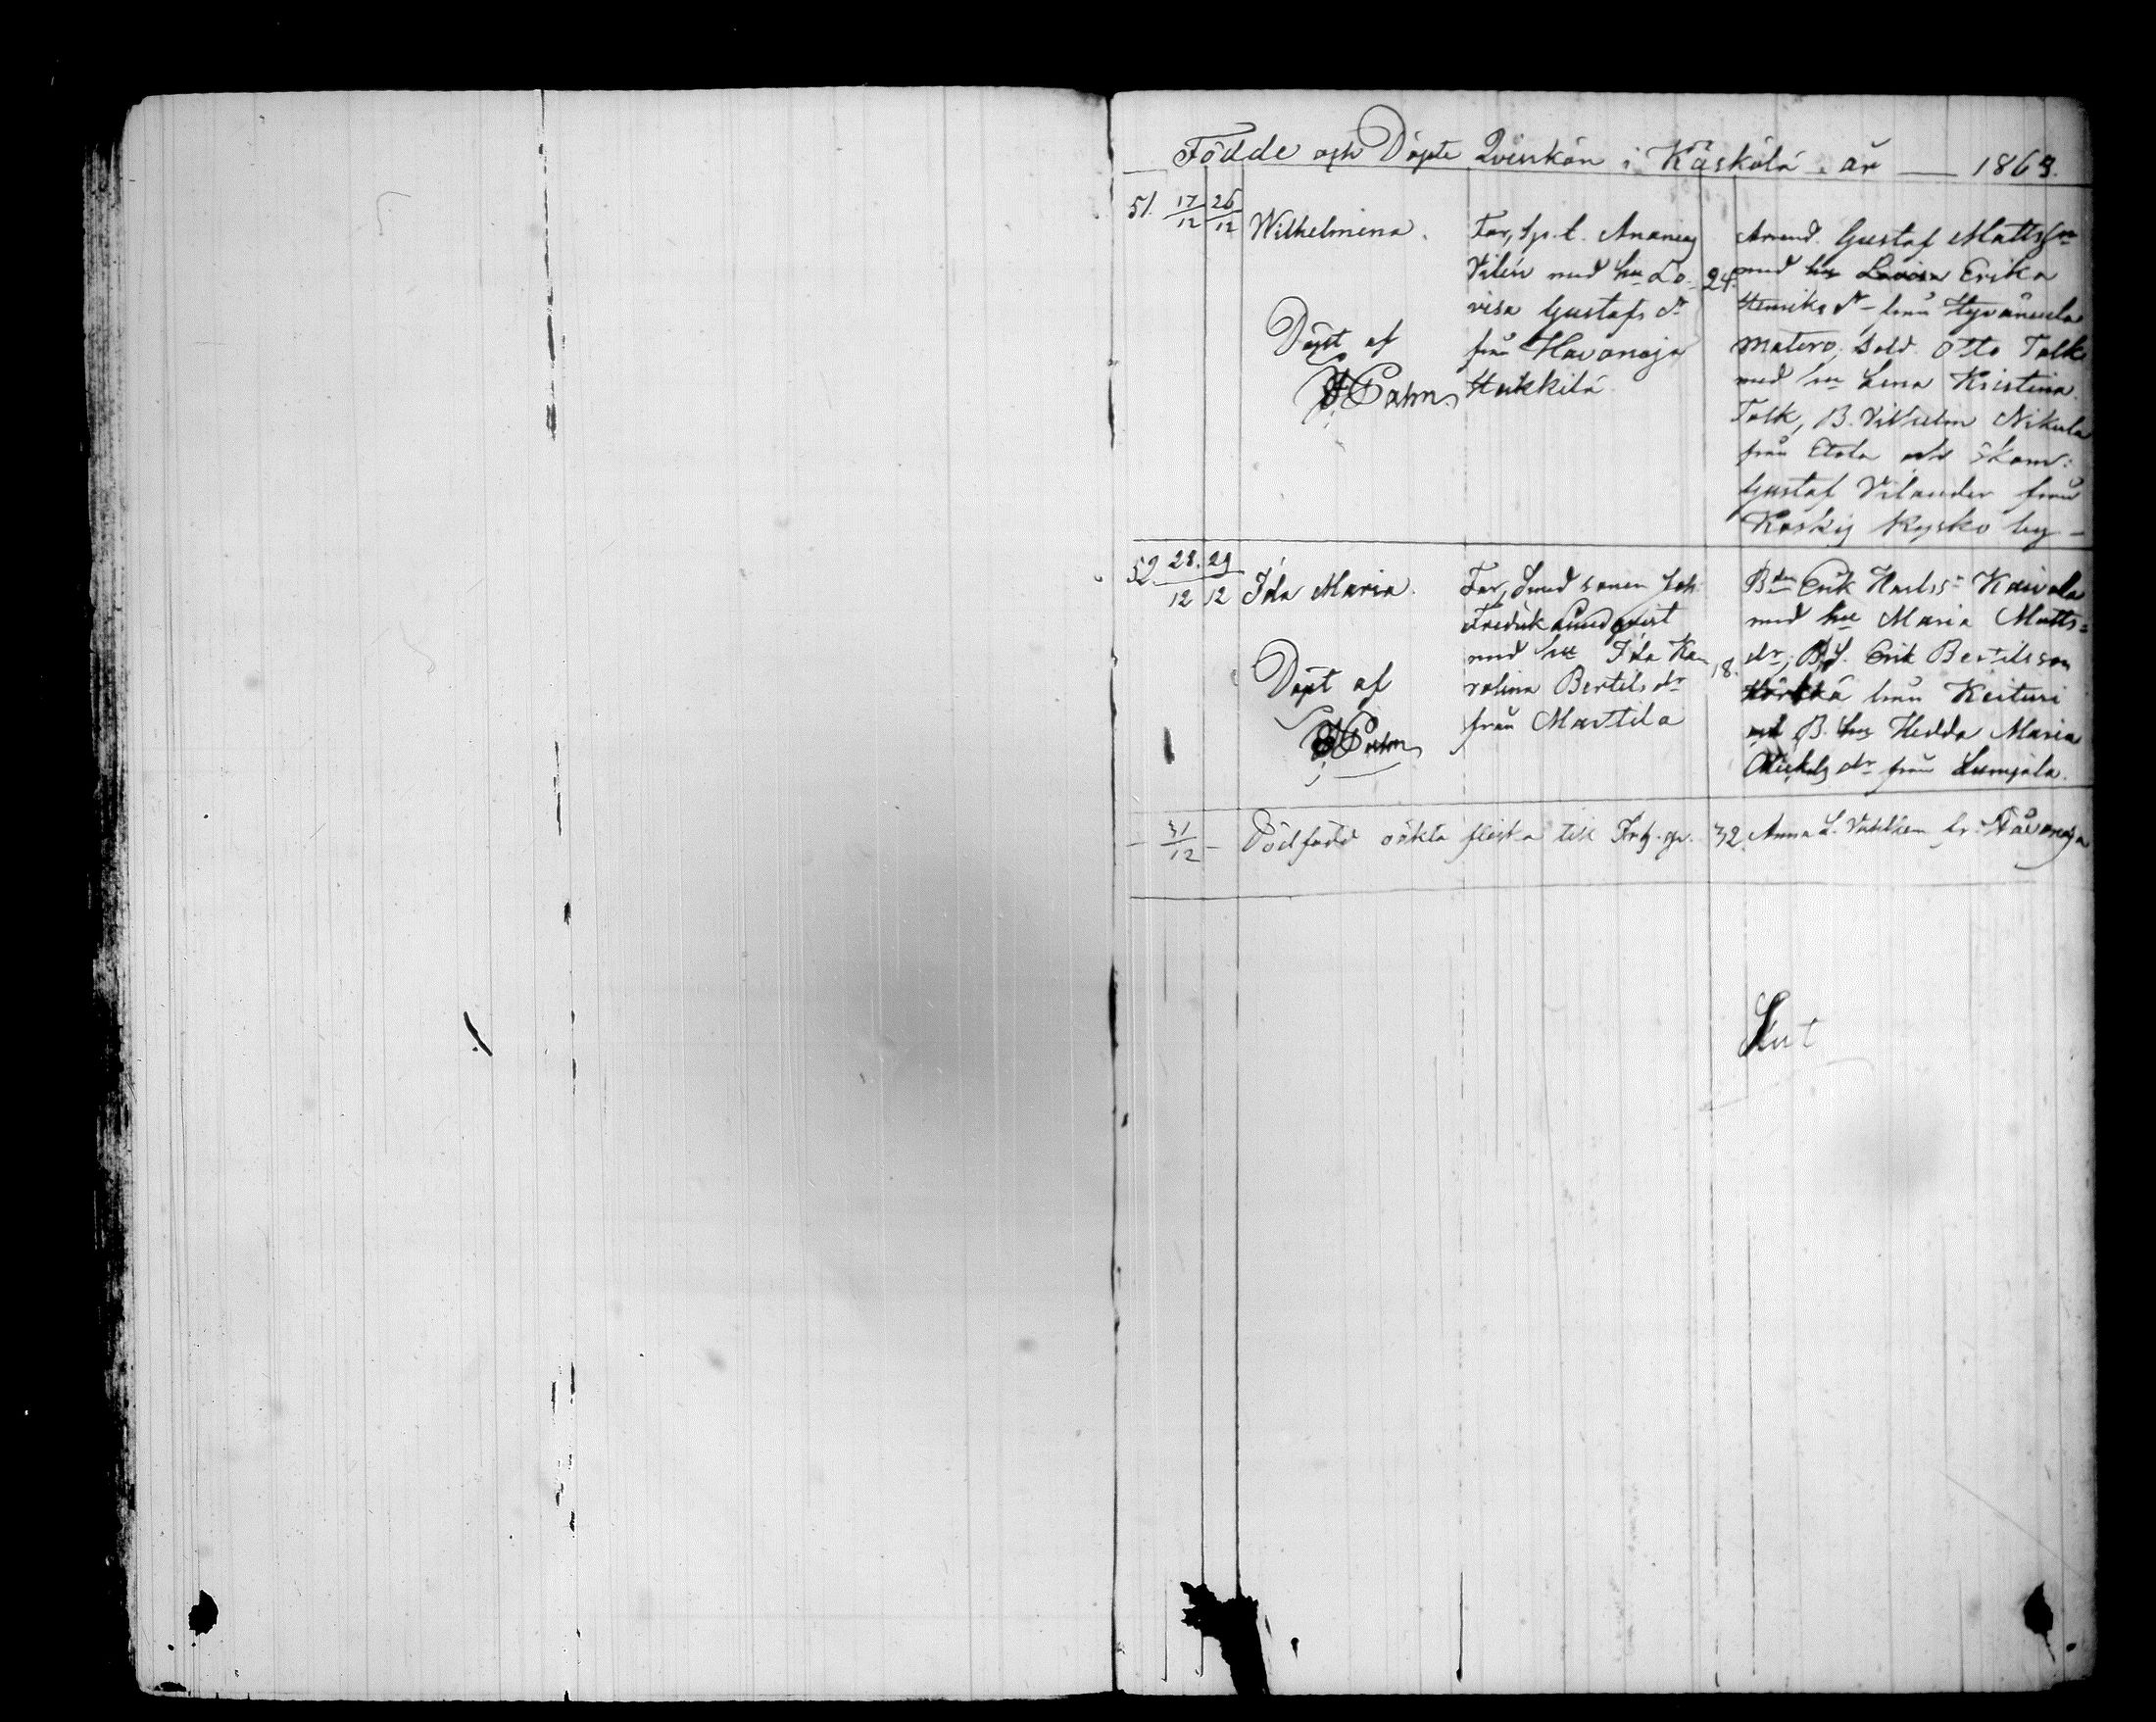 Födde och Döpte Qvinkön i Kåskölä år — 1863.
51. 17/12 26/12 Wilhelmina.
Far, Sp. t. Ananias
Vilén med hu Lo-
visa Gustafs dr
från Havanoja
Heikkilä
24.
Döpt af
Palm
Arend. Gustaf Mattsson
med hu Lovisa Erika
Henriks dr från Hyväneula
Matero, Sold. Otto Tolk
med hu Lena Kristina
Tolk, B. Vilhelm Nikula
från Etola och
Gustaf Vilander från
Koskis Kysko by
52 28/12 29/12 Ida Maria.
Far, Smed sonen Joh
Fredrik Lindqvist
med hu Ida Ka-
rolina Bertils dr
från Marttila
18.
Döpt af
Palm
Bdn Erik Karlss Kaivola
med hu Maria Matts-
dr, B.S. Erik Bertilsson
Körkkä från Keituri
och B. hu Hedda Maria
Mickels dr från Lumiala.
— 31/12 — Dödfödd oäkta flicka till 32. Anna L. fr. Havanoja
Slut